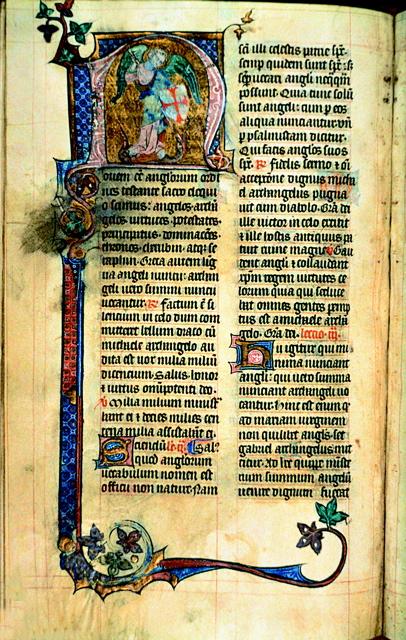 Nouem eē angelorum ordi
nes testante sacro eloqui
o scimus: angelos·archā
gelos·virtutes·potestates·
principatus·dominacōes·
thronos·cherubin·atqȝ se
raphin·Greca autem liḡ
ua angeli nuncii: archan
geli uero summi nuncii
uocantur· R̃ factum ē si
lencium in celo dum com
mitteret bellum draco cū
michaele archangelo au
dita est uox milia miliū
dicencium·Salus·honor
& uirtus om̄ipotenti deo·
v̄ Milia milium minist̄
bant ei & decies milies cen
tena milia assistebant ei·
Sciendū Sal̄
quod angelorum
uocabulum nomen est
officii non nature·Nam
sc̄i illi celestis patrie sp̄c
semp quidem sunt sp̄c: sȝ
sēp uocari angli neq̄q̄m
possunt·Quia tunc solū
sunt angeli: cum p eos
aliqua nunciantur·vn̄
p psalmistam dicitur·
Qui facis angelos suos
sp̄c· R̃ fidelis sermo & oī
acceptōne dignus michī
el archangelus pugna
uit cum diabolo·Grā dei
ille uictor in celo extitit
& ille hostis antiquus pa
ssus est ruine magne v̄ Gau
dent angli & collaudant
xp̄m regem uirtutes ce
lorum quia qui seduce
bat omnes gentes pemp
tus est a michaele archā
gelo·Grā dei· lectio
Hii igitur qui mi
nima nunciant
angli: qui uero summa
nunciant archangeli uo
cantur·Hinc est enim q̄
ad mariam uirginem
non quilibet angls·sȝ
gabriel archāgelus mit
titur·Ad hoc quippe miste
rium summum angelū
uenire dignum fuerat